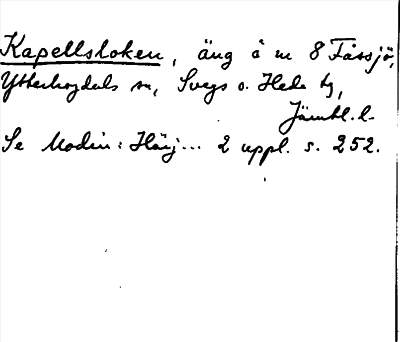 Kapellsloken, äng å nr 8 Fåssjö,
Ytterhogdals sn, Svegs o. Hede tg,
Jämtl. l.
Se Modin: Härj... 2 uppl. s. 252.